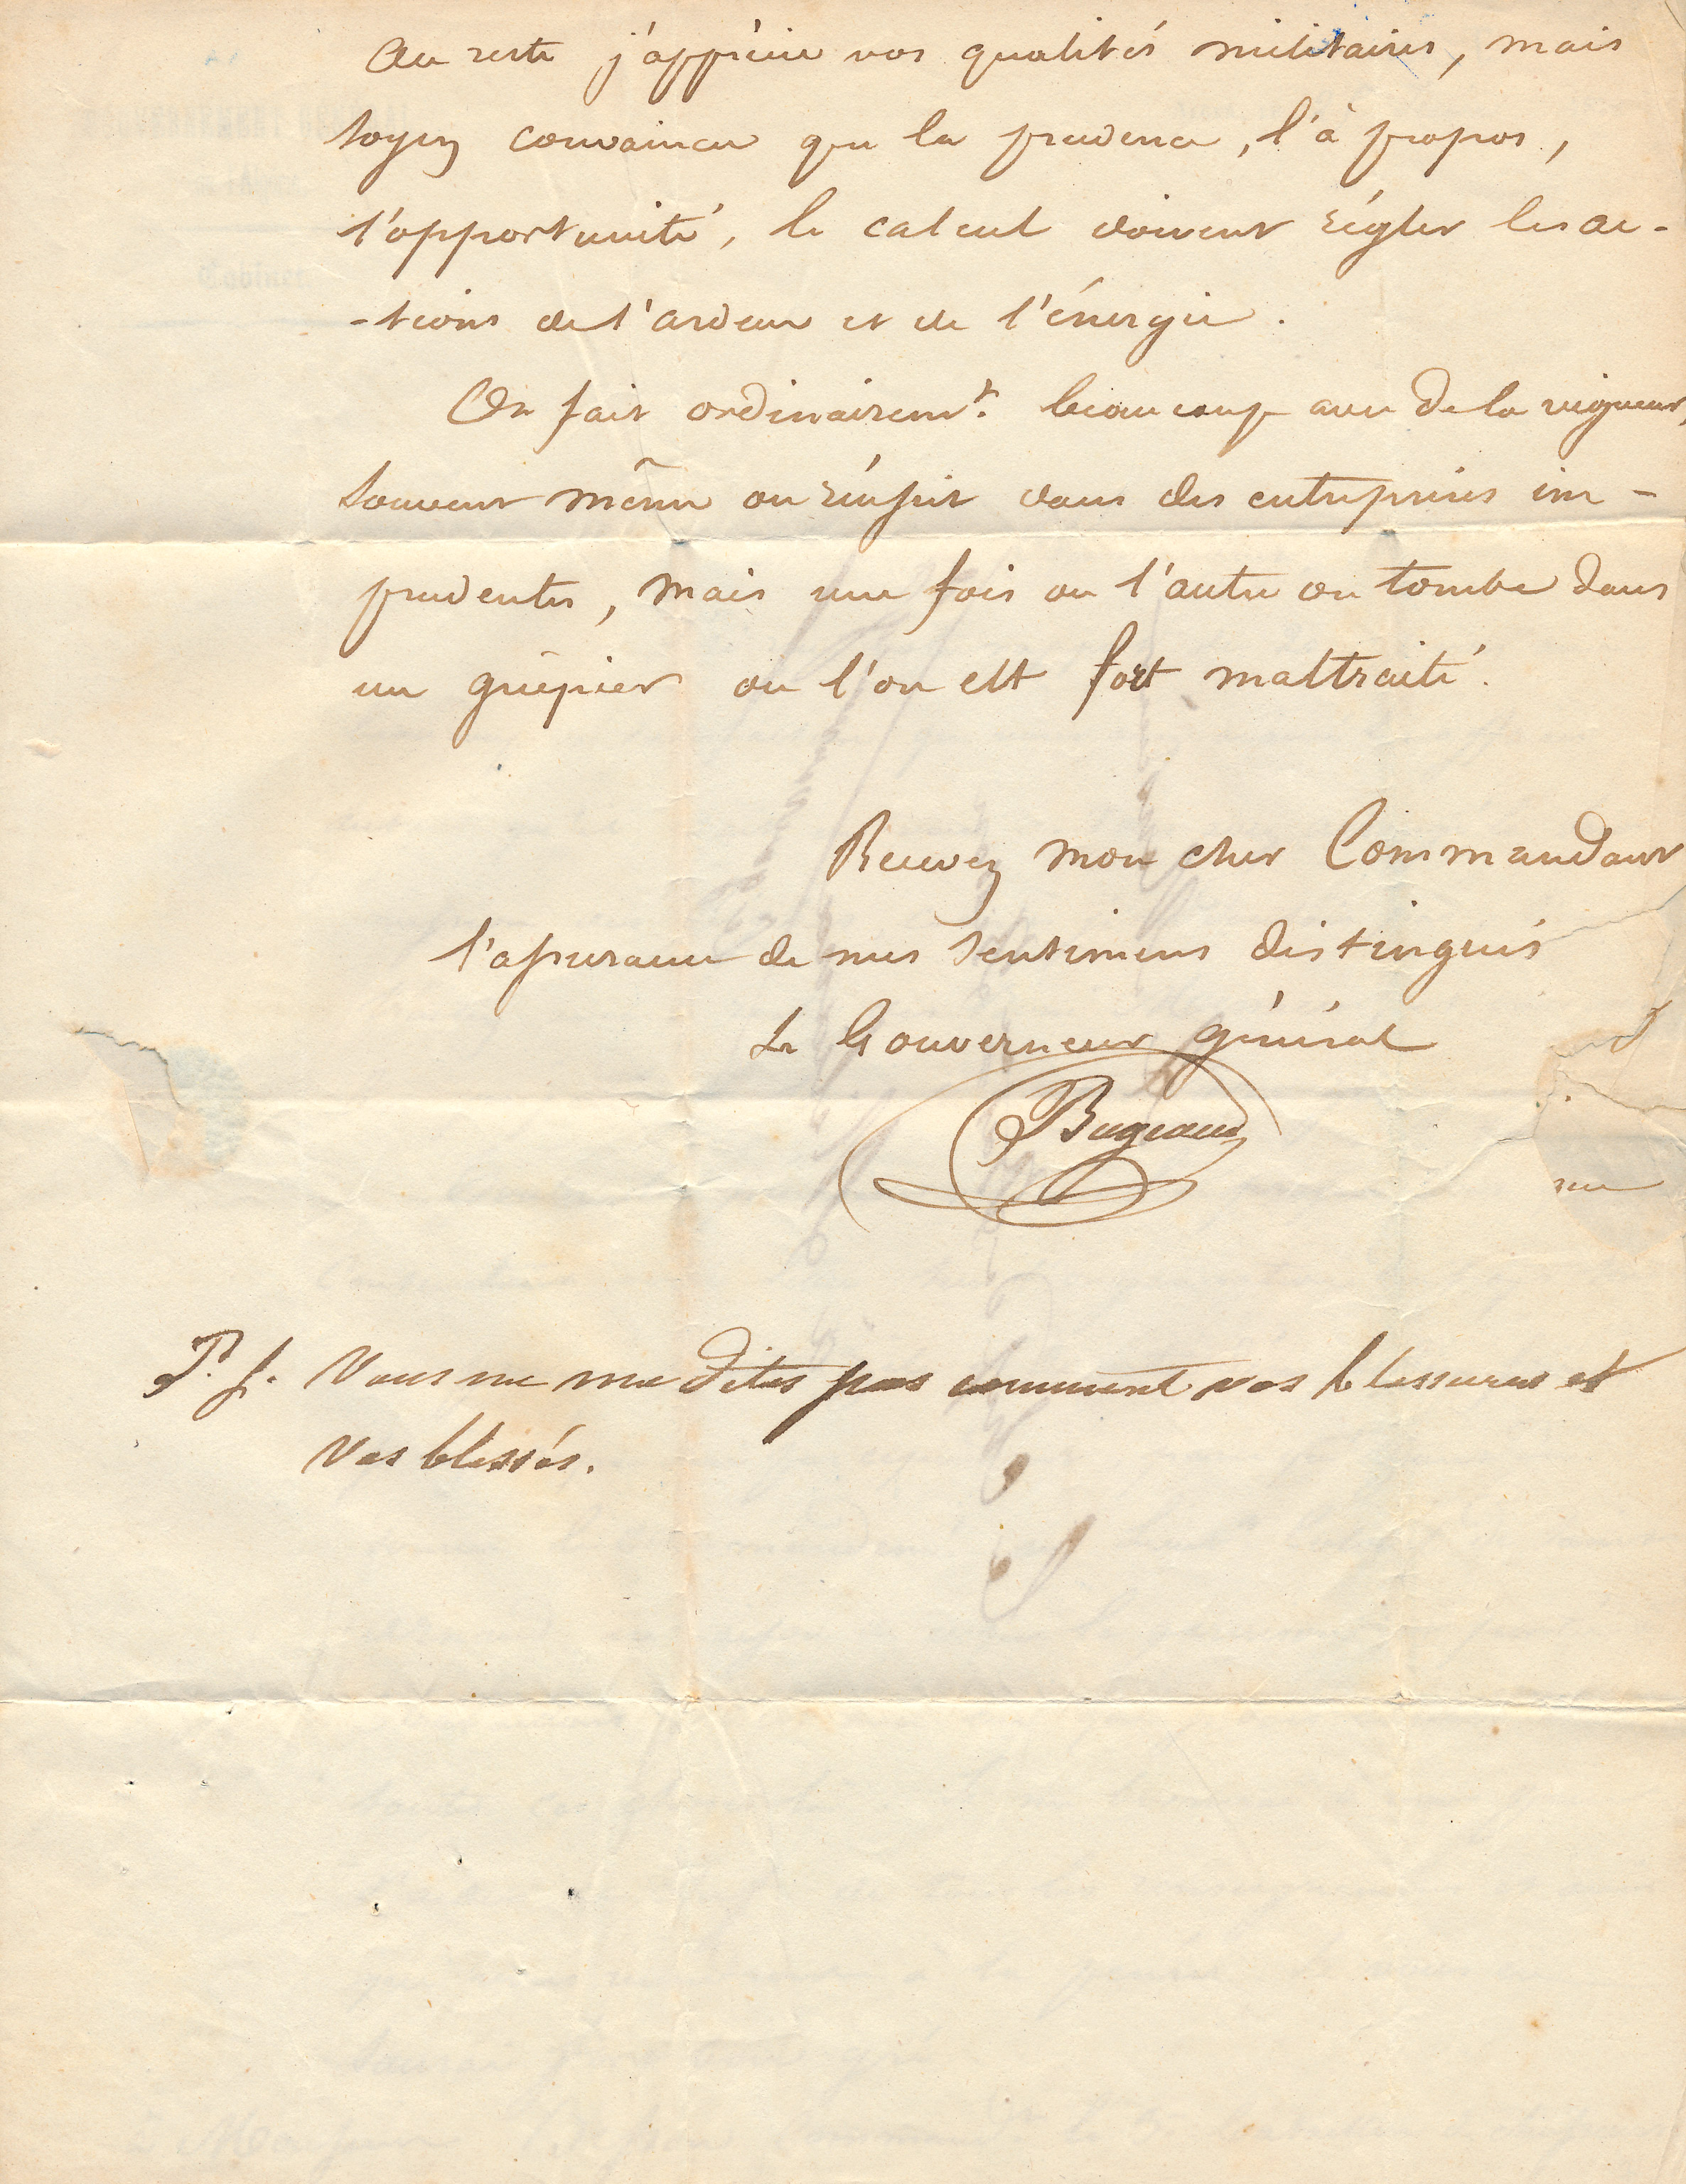 Au reste j'apprécie vos qualités militaires, mais
soyez convaincu que la prudence, l'à propos,
l'opportunité, le calcul doivent régler les ac-
-tions de l'ardeur et de l'énergie.
On fait ordinairemt. beaucoup avec de la vigueur,
souvent même on réussit dans des entreprises im-
prudentes, mais une fois ou l'autre on tombe dans
un guêpier ou l'on est fort maltraité.
Recevez mon cher Commandant
l'assurance de mes sentimens distingués
Le Gouverneur général
Bugeaud
P. S. Vous ne me dites pas comment vos blessures et
vos blessés.